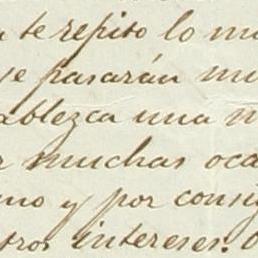 te repito lo m
se pasarán mu
ablezca una n
r muchas oca
no y por consi
tros intereses.